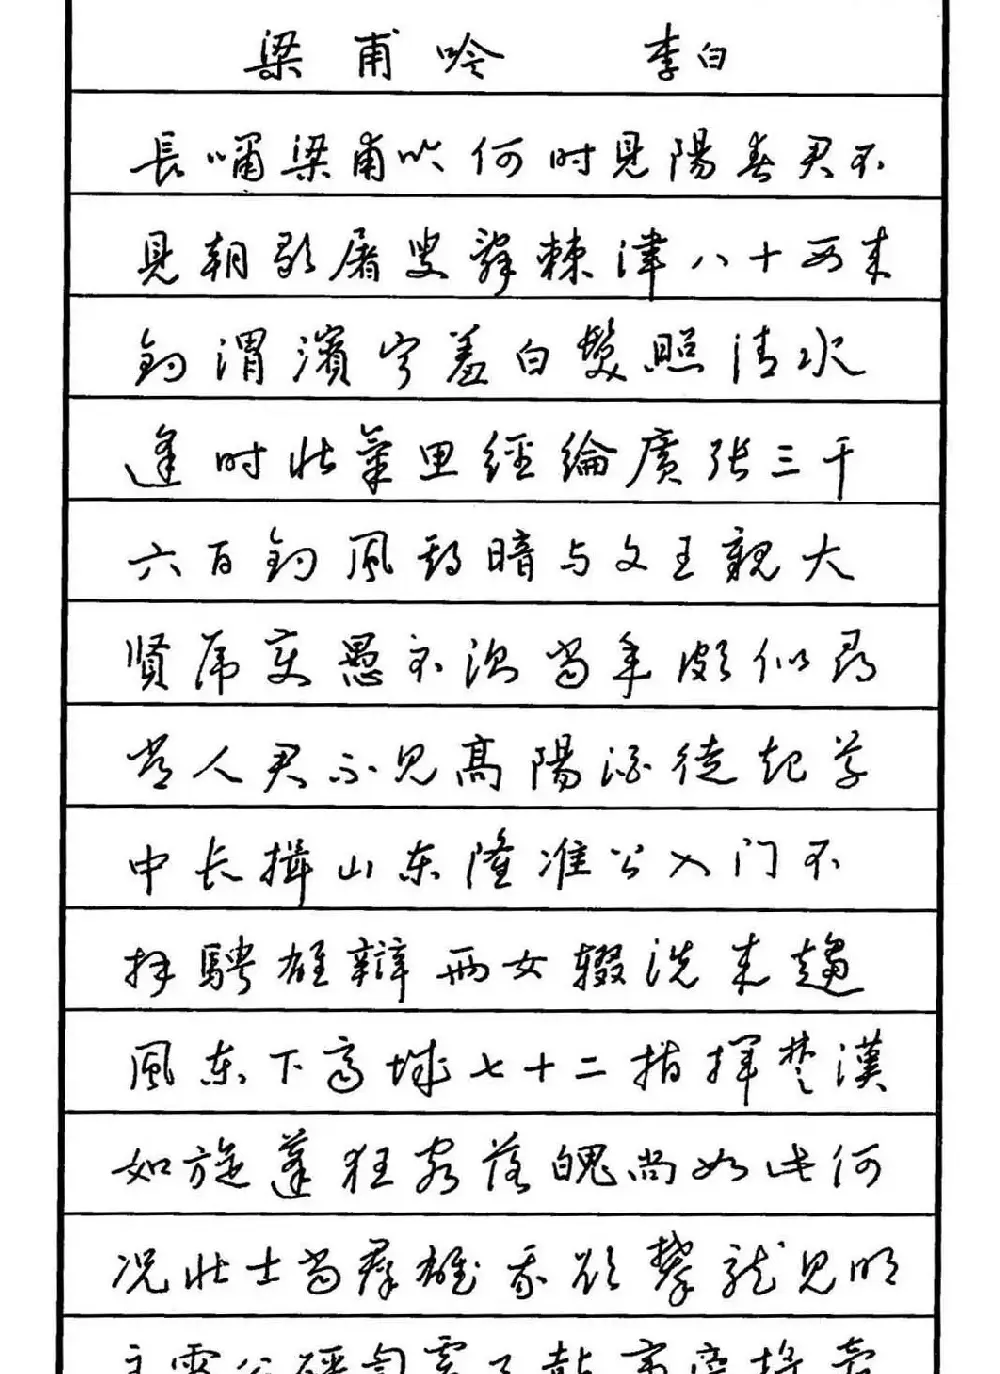 梁甫吟 李白
長嘯梁甫吟何时見陽春君不
見朝歌屠叟辭棘津八十西来
釣渭濱宁羞白髮照清水
逢时壮氣思經綸廣张三千
六百釣風期暗与文王親大
贤虎变愚不测当年颇似尋
常人君不见高陽酒徒起草
中长揖山东隆准公入门不
拜騁雄辯两女辍洗来趨
風东下齐城七十二指揮楚漢
如旋蓬狂客落魄尚如此何
况壮士当群雄我欲攀龍见明
主雷公砰訇震天鼓帝